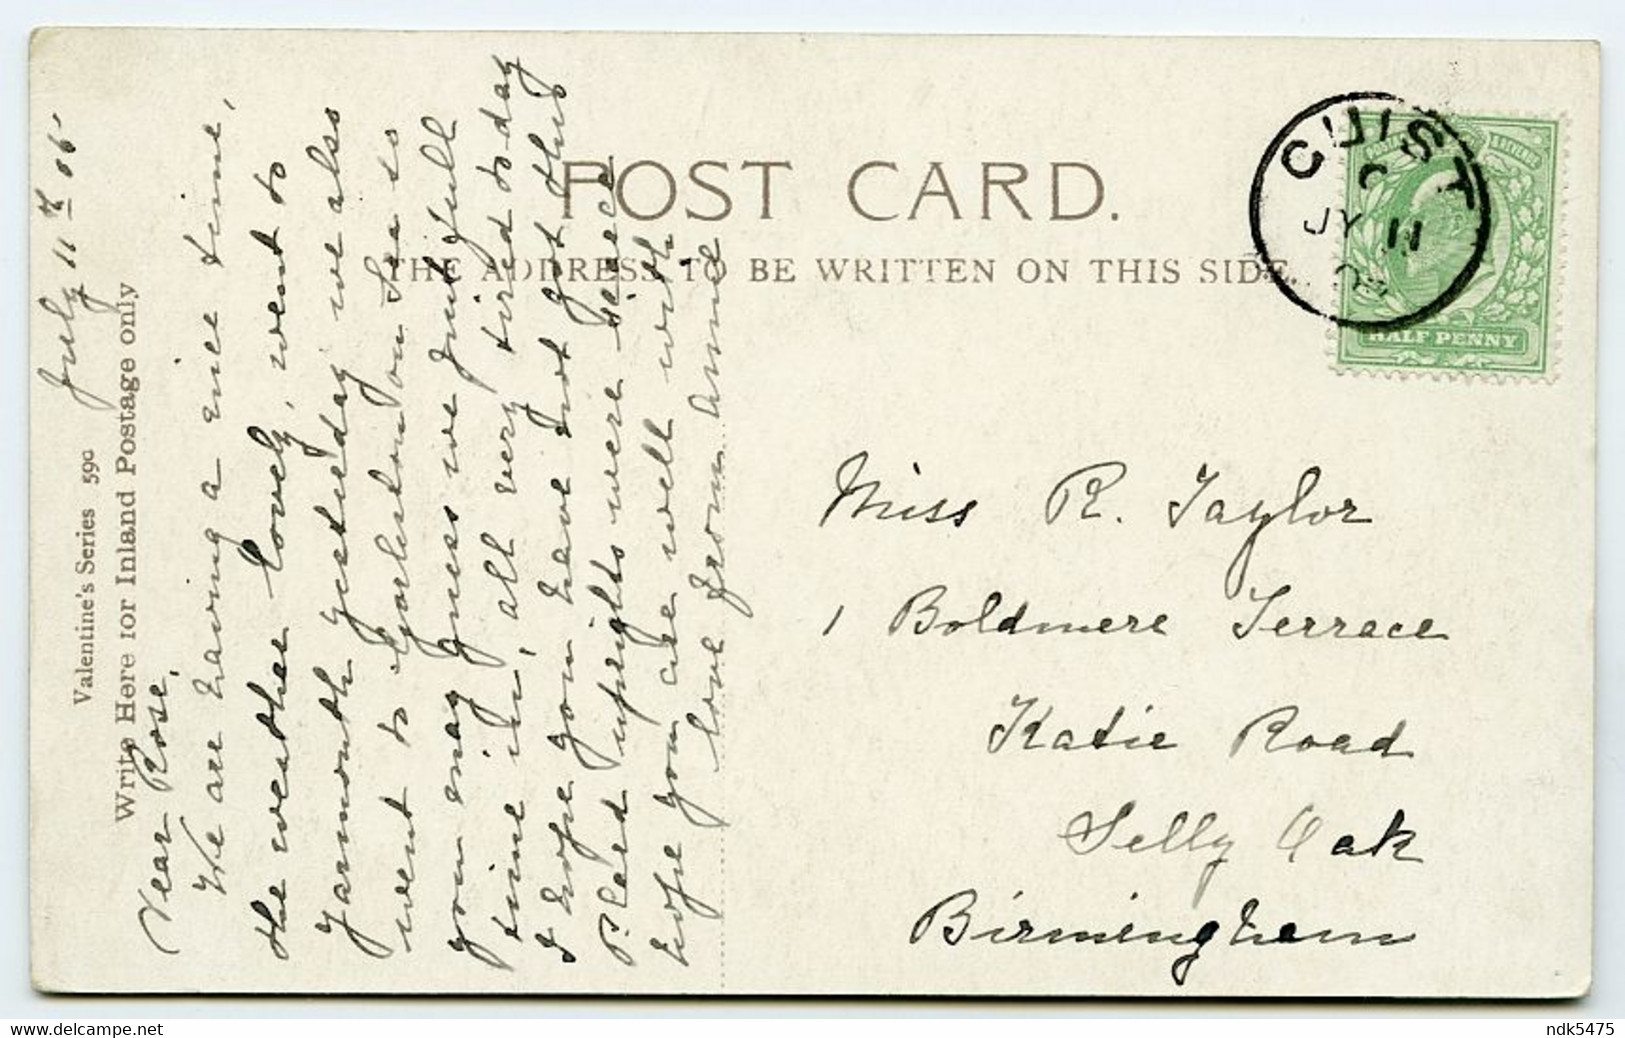 POST CARD.
THE ADDRESS TO BE WRITTEN ON THIS SIDE
Valentine's Series 590
Write Here for Inland Postage only
July 11th 06
Dear Rose,
We are having a nice time,
the weather lovely, went to
Yarmouth yesterday we also
went to Gorleston on Sea so
you may guess we put full
time in, all very tired to day
I hope you have not got thus
P. Card uprights were since
hope you are well with
love from Annie
CUIST
C
JY 11
06
POSTAGE & REVENUE
HALF PENNY
Miss R. Taylor
1 Boldmere Terrace
Katie Road
Selly Oak
Birmingham
ndk5475